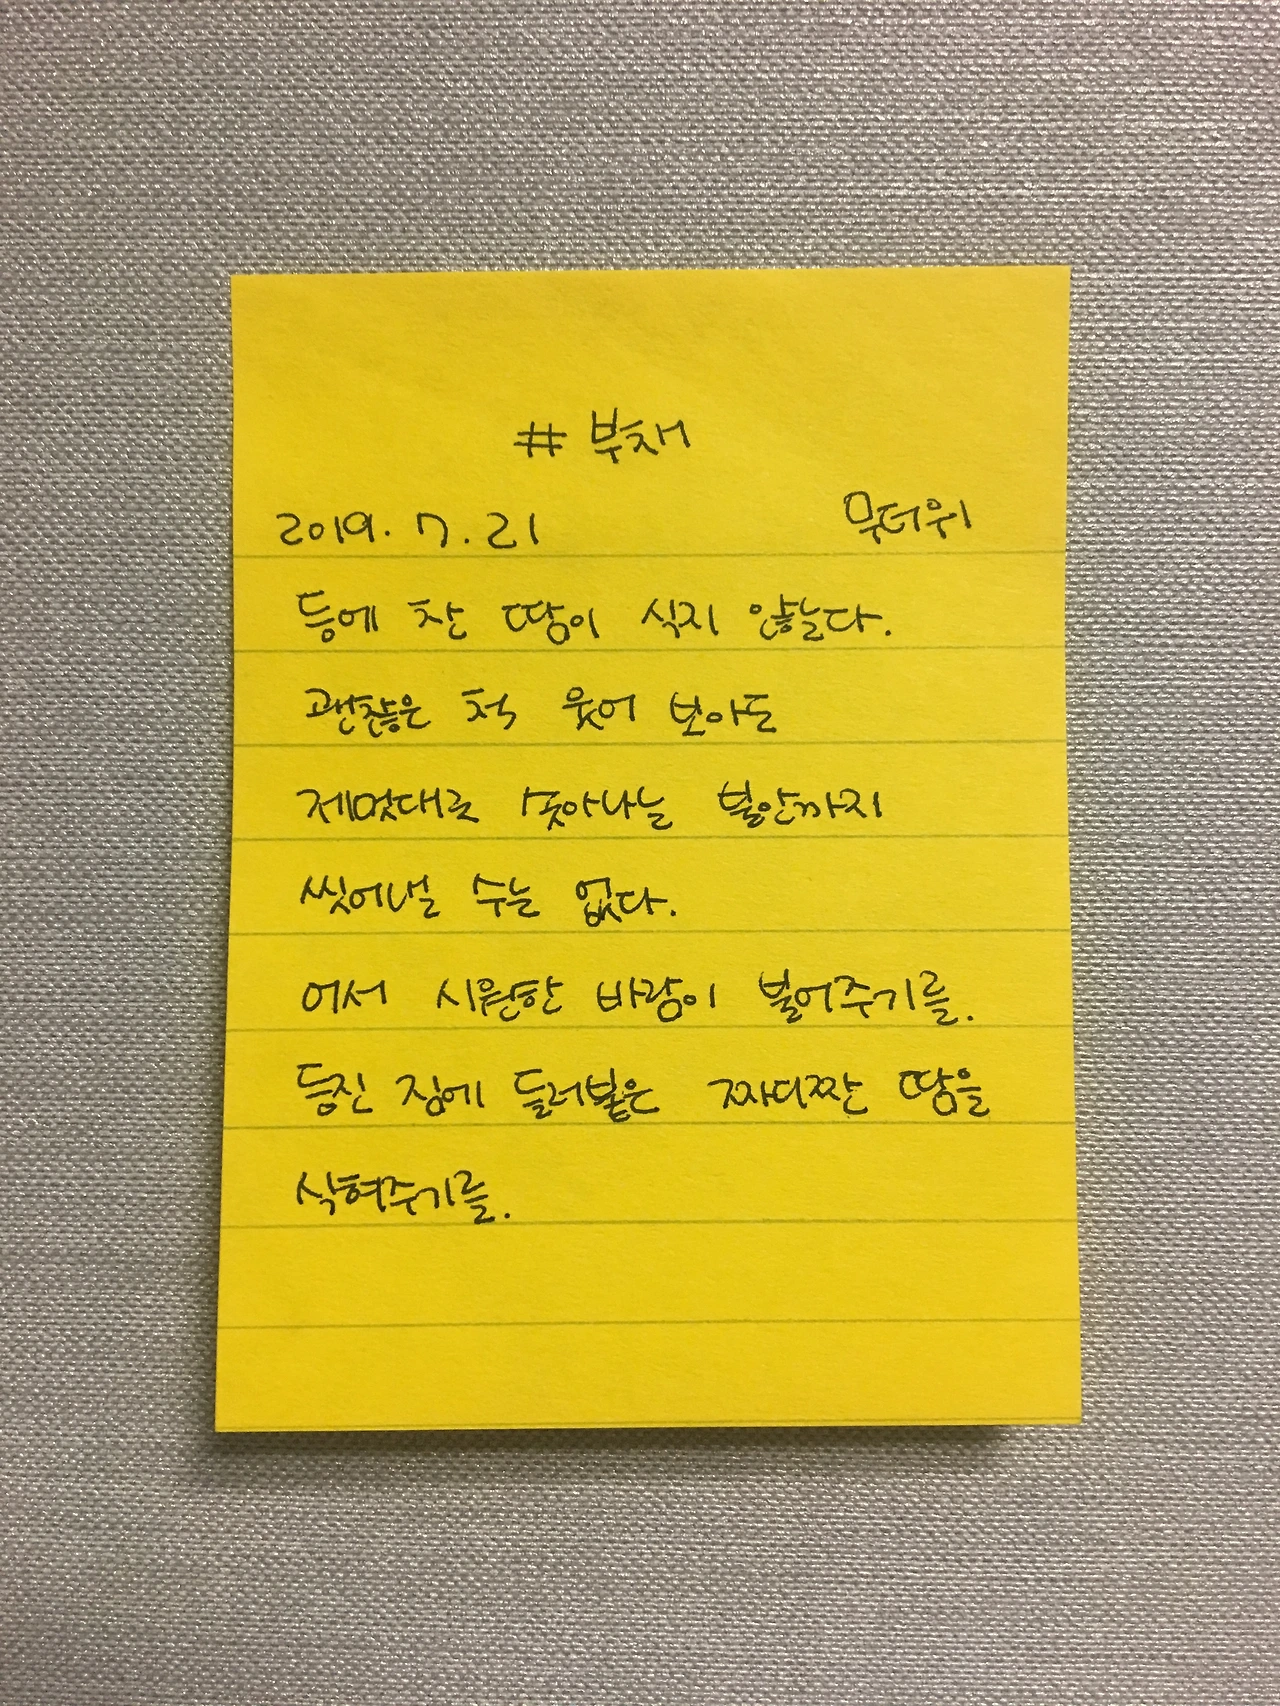 # 부채
2019. 7. 21 무더위
등에 찬 땀이 식지 않는다.
괜찮은 척 웃어 보아도
제멋대로 솟아나는 불안까지
씻어낼 수는 없다.
어서 시원한 바람이 불어주기를.
등진 짐에 들러붙은 짜디짠 땀을
식혀주기를.